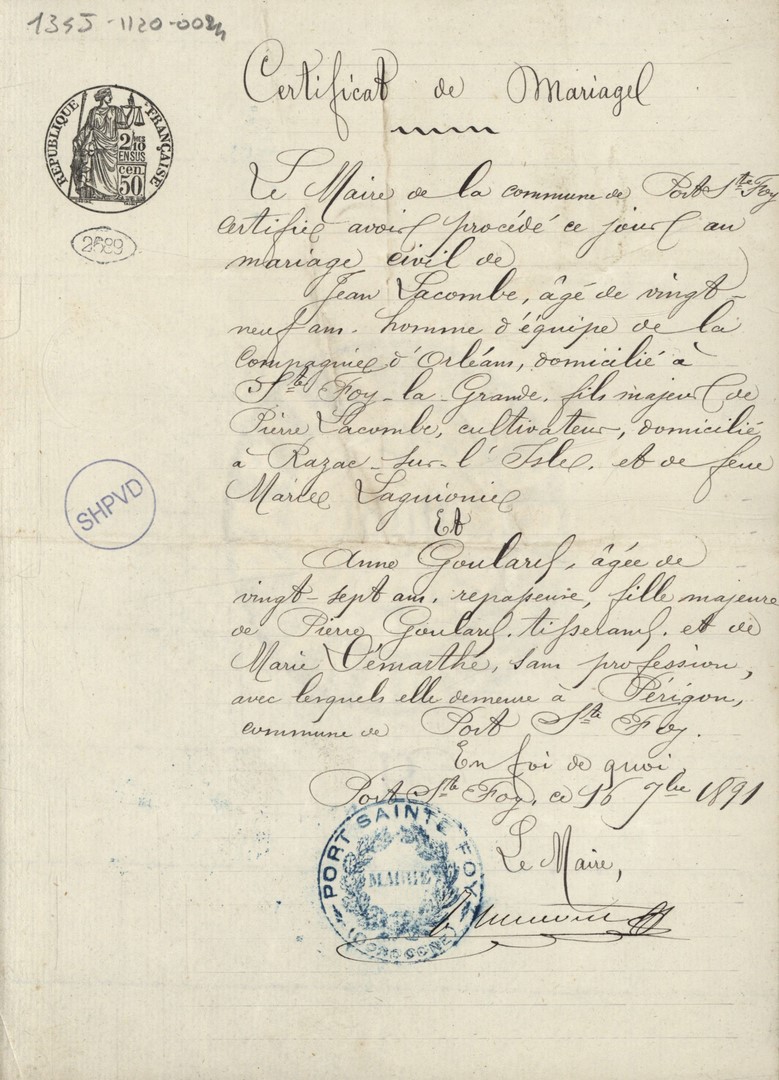 134J-1120-002
Certificat de Mariage
RÉPUBLIQUE FRANÇAISE
2/10 EN SUS
50 cen
2689
Le Maire de la commune de Port Ste Foy
certifie avoir procédé ce jour au
mariage civil de
Jean Lacombe, âgé de vingt-
neuf ans. homme d'équipe de la
Compagnie d'Orléans, domicilié à
Ste Foy-la-Grande. fils majeur de
Pierre Lacombe, cultivateur, domicilié
à Razac-sur-l'Isle. et de feue
Marie Laguionie
Et
SHPVD
Anne Goulard, âgée de
vingt-sept ans, repasseuse, fille majeure
de Pierre Goulard. tisserand. et de
Marie Démarthe, sans profession,
avec lesquels elle demeure à Périgon,
commune de Port Ste Foy.
En foi de quoi
Port Ste Foy, ce 16 7bre 1891
Le Maire,
PORT SAINTE FOY
MAIRIE
(DORDOGNE)